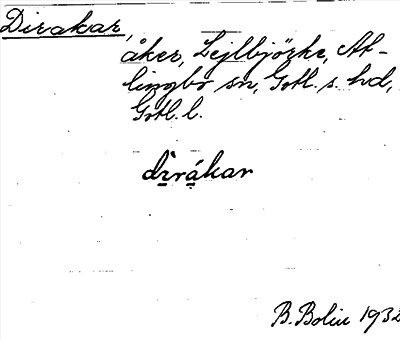 Dirakar,
åker, Lejlbjörke, At-
lingbo sn, Gotl. s. hd,
Gotl. l.
dịrạ́kar
B. Bolin 1932